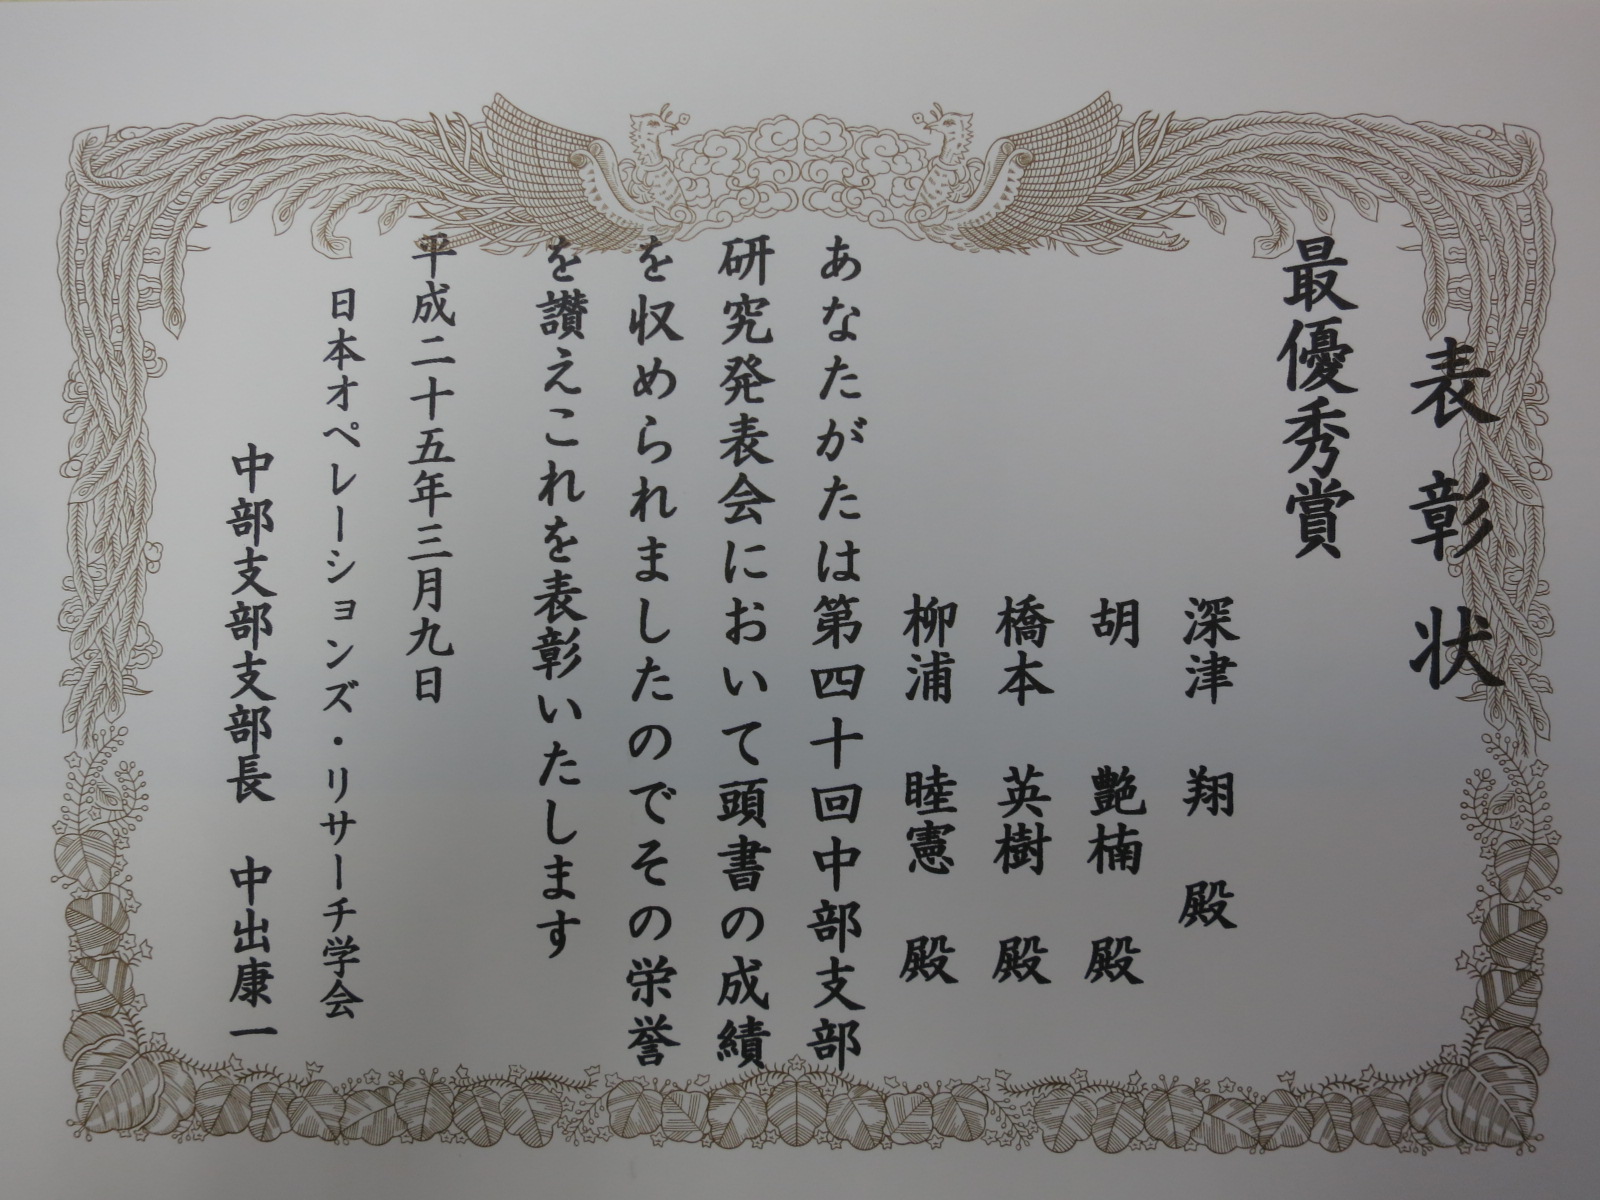 表彰状
最優秀賞
深津 翔 殿
胡 艶楠 殿
橋本 英樹 殿
柳浦 睦憲 殿
あなたがたは第四十回中部支部
研究発表会において頭書の成績
を収められましたのでその栄誉
を讃えこれを表彰いたします
平成二十五年三月九日
日本オペレーションズ・リサーチ学会
中部支部支部長 中出康一